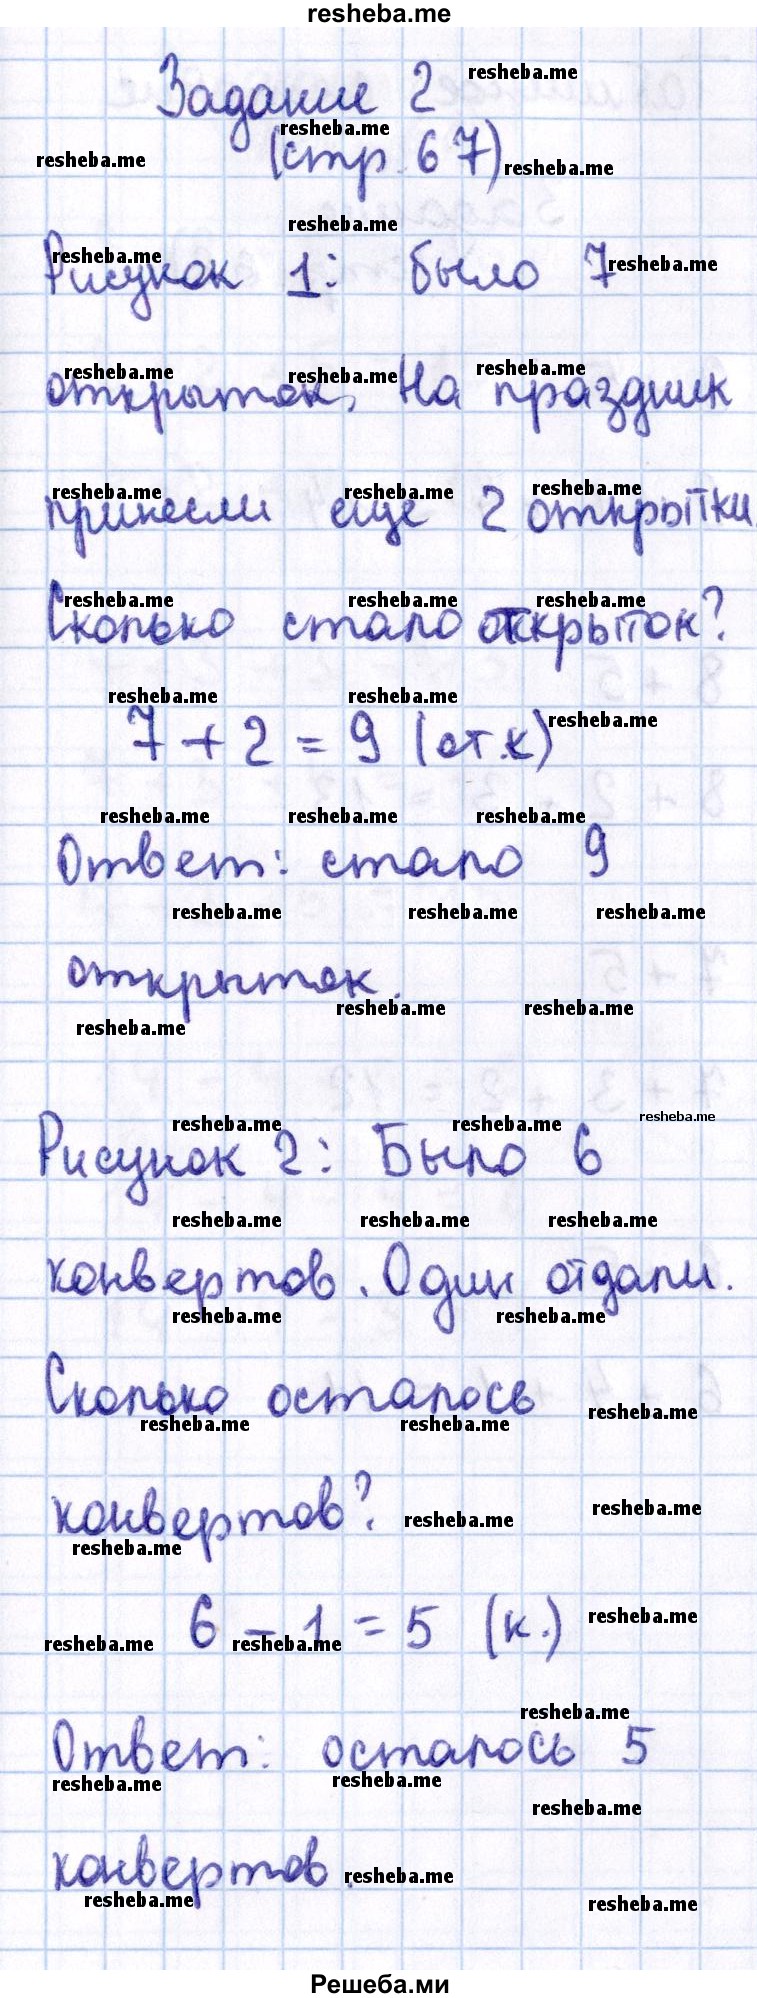 resheba.me
Задание 2
(стр. 67)
Рисунок 1: было 7
открыток. На праздник
принесли еще 2 открытки.
Сколько стало открыток?
7 + 2 = 9 (от.к)
Ответ: стало 9
открыток.
Рисунок 2: Было 6
конвертов. Один отдали.
Сколько осталось
конвертов?
6 - 1 = 5 (к.)
Ответ: осталось 5
конвертов.
Решеба.ми